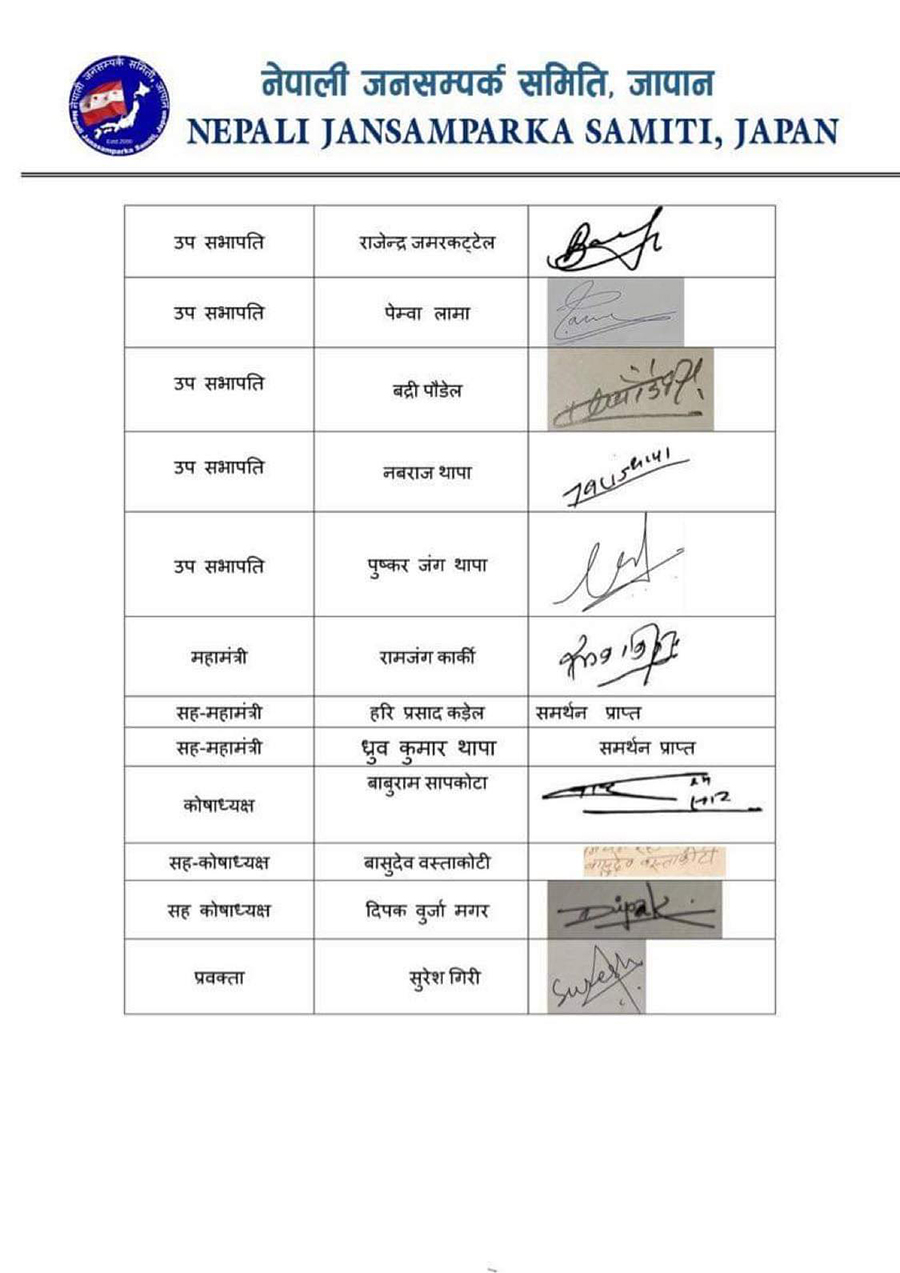 नेपाली जनसम्पर्क समिति, जापान
NEPALI JANSAMPARKA SAMITI, JAPAN
नेपाली जनसम्पर्क समिति, जापान
Nepali Jansamparka Samiti, Japan
उप सभापति राजेन्द्र जमरकट्टेल
उप सभापति पेम्वा लामा
उप सभापति बद्री पौडेल
उप सभापति नबराज थापा
उप सभापति पुष्कर जंग थापा
महामंत्री रामजंग कार्की
सह-महामंत्री हरि प्रसाद कड़ेल समर्थन प्राप्त
सह-महामंत्री ध्रुव कुमार थापा समर्थन प्राप्त
कोषाध्यक्ष बाबुराम सापकोटा
सह-कोषाध्यक्ष बासुदेव वस्ताकोटी बासुदेव वस्ताकोटी
सह कोषाध्यक्ष दिपक वुर्जा मगर Dipak
प्रवक्ता सुरेश गिरी Suresh